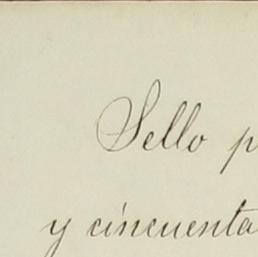 Sello p
y cincuenta